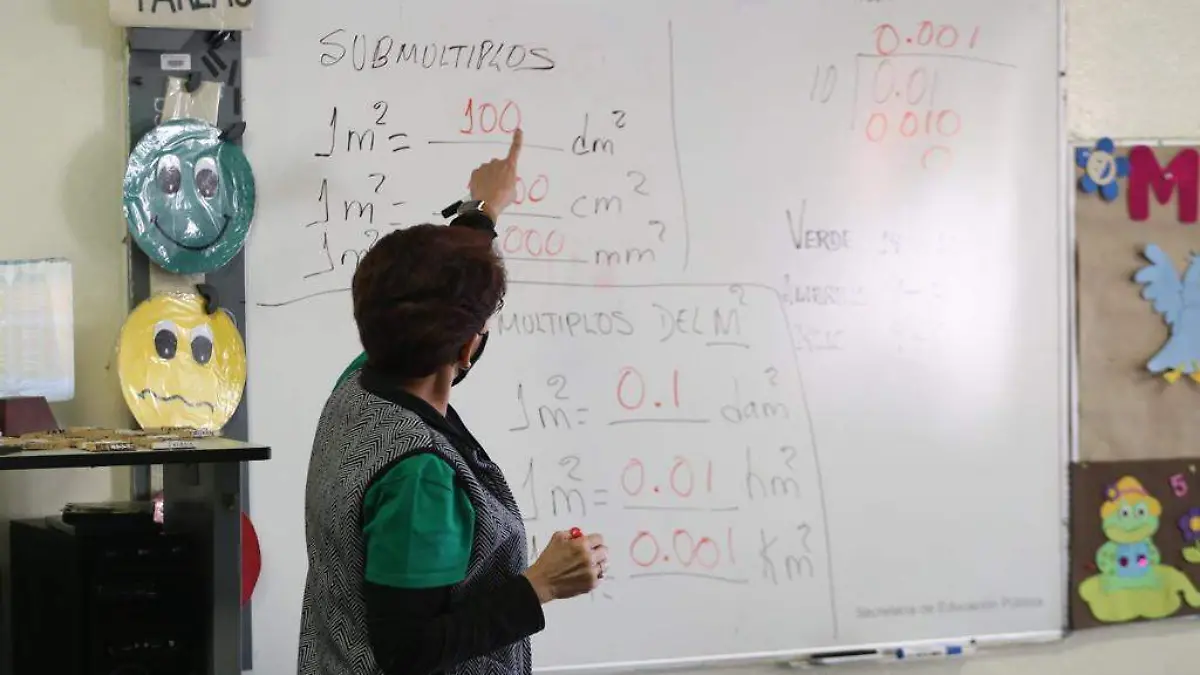 TAREAS
SUBMULTIPLOS
1m² = 100 dm²
1m² = 00 cm²
1m² 000 mm²
MULTIPLOS DEL M²
1m² = 0.1 dam²
1m² = 0.01 hm²
0.001 Km²
0.001
10 0.01
0.010
0
VERDE
M
5
Secretaría de Educación Pública